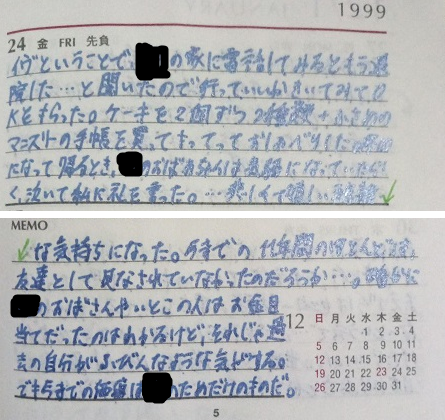 1999
24 金 FRI 先負
イヴということで、の家に電話してみるともう退
院した…と聞いたので行っていいかきいてみてO
Kをもらった。ケーキを2個ずつ2種類+
の手帳を買ってもってっておしゃべりした。
になって帰るとき、のおばあさんは気弱になっていたらし
く、泣いて私に礼を言った。…悲しくて嬉しい複雑
MEMO
な気持ちになった。今までの 年間のほとんどを、
友達として見なされていなかったのだろうか…。確かに
のおばさんやいとこの人はお金目
当てだったのはわかるけど、それじゃ過
去の自分がふびんなような気がする。
今までの価値は のためだけのものだ。
12 日 月 火 水 木 金 土
1 2 3 4
5 6 7 8 9 10 11
12 13 14 15 16 17 18
19 20 21 22 23 24 25
26 27 28 29 30 31
5